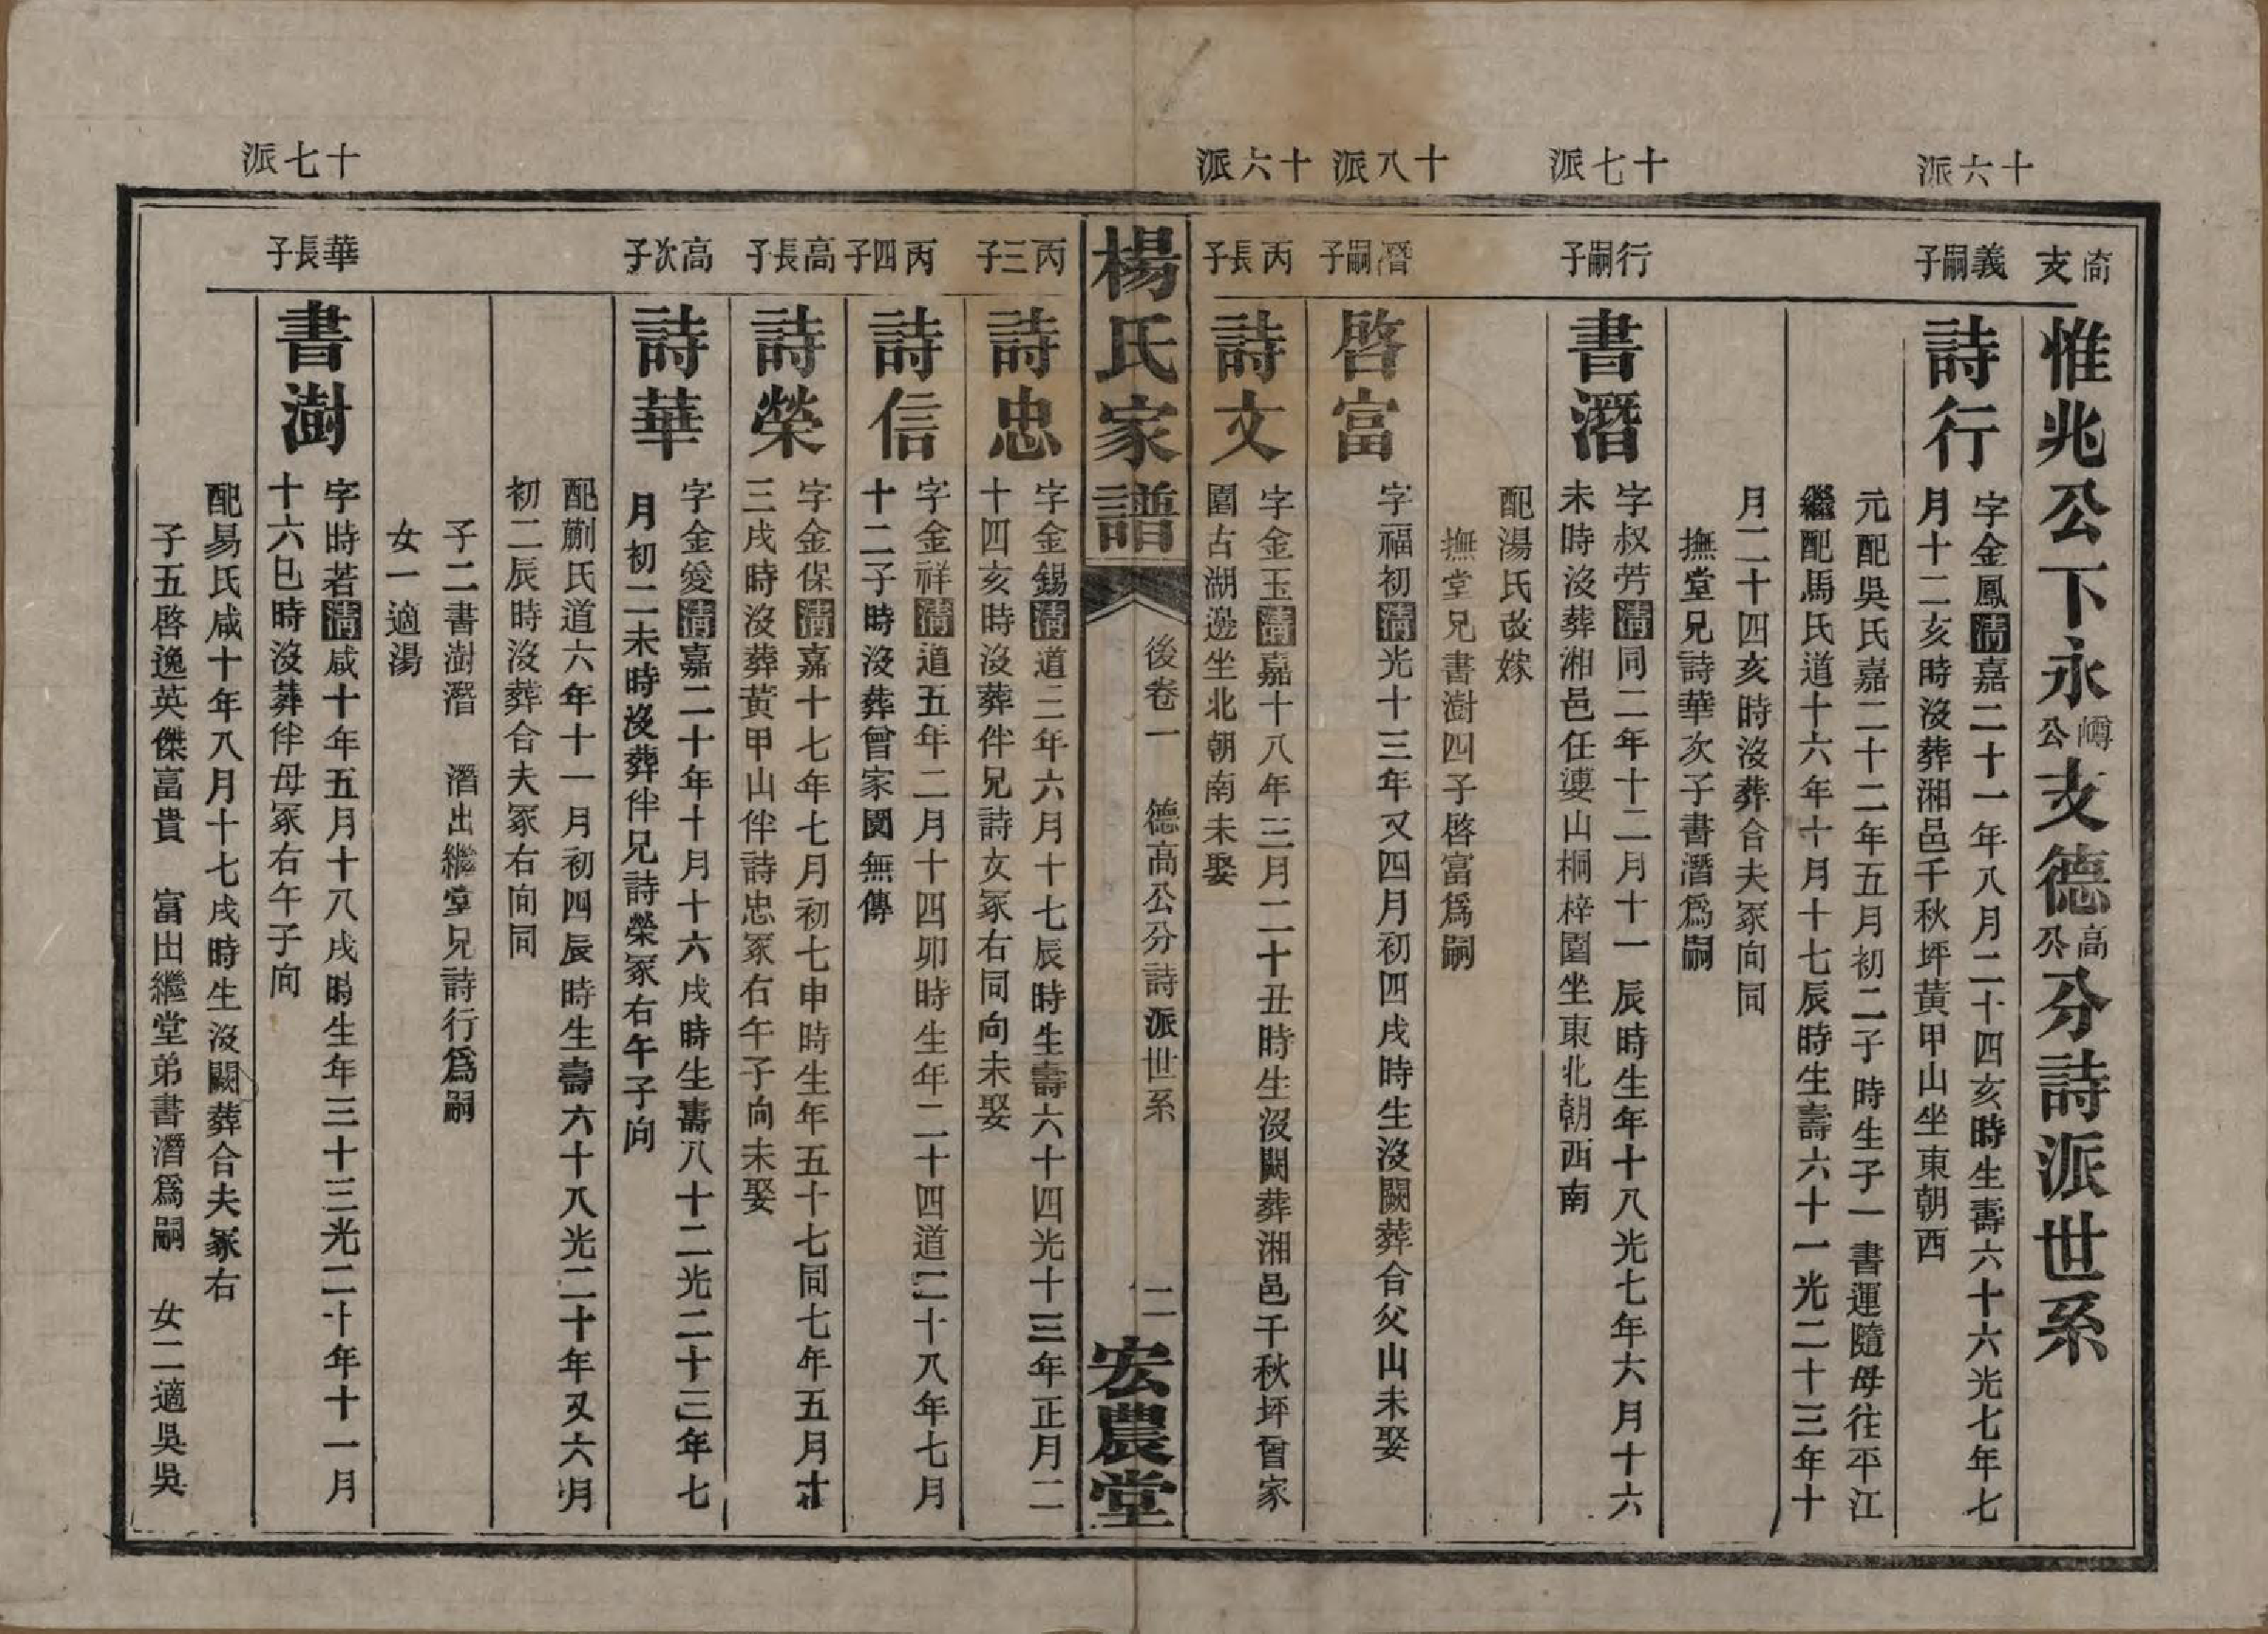 十六派
十七派
十八派
十六派
十七派
崙支
惟兆公下永嶹公支德高公分詩派世系
義嗣子
詩行
字金鳳清嘉二十一年八月二十四亥時生壽六十六光七年七
月十二亥時沒葬湘邑千秋坪黃甲山坐東朝西
元配吳氏嘉二十二年五月初二子時生子一書運隨母往平江
繼配馬氏道十六年十月十七辰時生壽六十一光二十三年十
月二十四亥時沒葬合夫冢向同
撫堂兄詩華次子書潛爲嗣
行嗣子
書潛
字叔芳清同二年十二月十一辰時生年十八光七年六月十六
未時沒葬湘邑任婆山桐梓園坐東北朝西南
配湯氏改嫁
撫堂兄書澍四子啓富爲嗣
潛嗣子
啓富
字福初清光十三年又四月初四戌時生沒闕葬合父山未娶
丙長子
詩文
字金玉清嘉十八年三月二十丑時生沒闕葬湘邑千秋坪曾家
園古湖邊坐北朝南未娶
楊氏家譜
後卷一 德高公分詩派世系
二
宏農堂
丙三子
詩忠
字金錫清道三年六月十七辰時生壽六十四光十三年正月二
十四亥時沒葬伴兄詩文冢右同向未娶
丙四子
詩信
字金祥清道五年二月十四卯時生年二十四道二十八年七月
十二子時沒葬曾家園無傳
高長子
詩榮
字金保清嘉十七年七月初七申時生年五十七同七年五月廿
三戌時沒葬黃甲山伴詩忠冢右午子向未娶
高次子
詩華
字金愛清嘉二十年十月十六戌時生壽八十二光二十三年七
月初二未時沒葬伴兄詩榮冢右午子向
配蒯氏道六年十一月初四辰時生壽六十八光二十年又六月
初二辰時沒葬合夫冢右向同
子二書澍潛 潛出繼堂兄詩行爲嗣
女一適湯
華長子
書澍
字時若清咸十年五月十八戌時生年三十三光二十年十一月
十六巳時沒葬伴母冢右午子向
配易氏咸十年八月十七戌時生沒闕葬合夫冢右
子五啓逸英傑富貴 富出繼堂弟書潛爲嗣 女二適吳吳